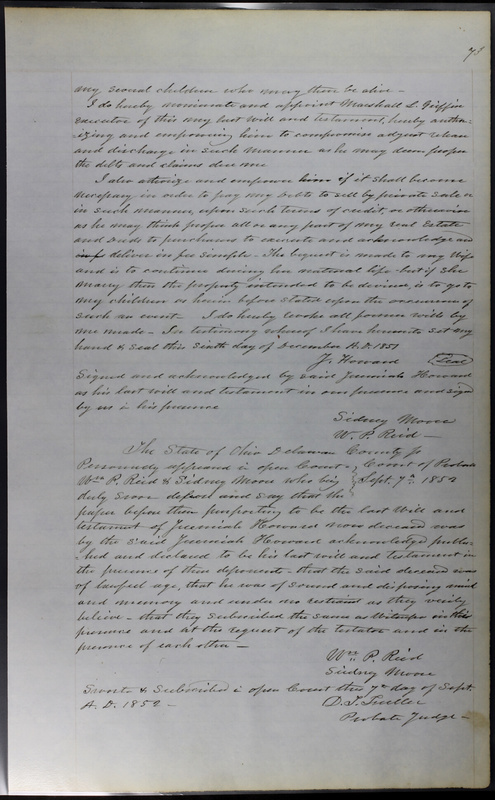 my several children who may then be alive –
I do hereby nominate and appoint Marshall L. Griffin
executor of this my last will and testament, hereby autho-
izing and empowering him to compromise adjust release
and discharge in such manner as he may deem proper
the debts and claims due me
I also athorize and empower him if it shall become
necessary in order to pay my debts to sell by private sale or
in such manner, upon such terms of credit, or otherwise
as he may think proper all or any part of my real Estate
and deeds to purchasers to execute and acknowledge and
deliver in fee simple – The bequest is made to my Wife
and is to continue during her natural life – but if she
marry then the property intended to be devised, is to go to
my children as herein before stated upon the occurrence of
such an event I do hereby revoke all former wills by
me made – In testimony whereof I have hereunto set my
hand & seal this Sixth day of December A.D. 1851
J. Howard (Seal)
Signed and acknowledged by said Jeremiah Howard
as his last will and testament in our presence and signed
by us in his presence
Sidney Moore
W. P. Reid –
The State of Ohio Delaware County ss
Personally appeared in open Court } Court of Probate
Wm P. Reid & Sidney Moore who being } Sept. 7th 1852
duly sworn depose and say that the }
paper before them purporting to be the last Will and
testament of Jeremiah Howard now deceased was
by the said Jeremiah Howard acknowledged publis-
hed and declared to be his last will and testament in
the presence of these deponents – that the said deceased was
of lawful age, that he was of sound and disposing mind
and memory and under no restraint as they verily
believe – that they subscribed the same as Witnesses in his
presence and at the request of the testator and in the
presence of each other –
Wm P. Reid
Sidney Moore
Sworn & Subscribed in open Court this 7th day of Sept.
A. D. 1852 –
D. T. Fuller
Probate Judge –